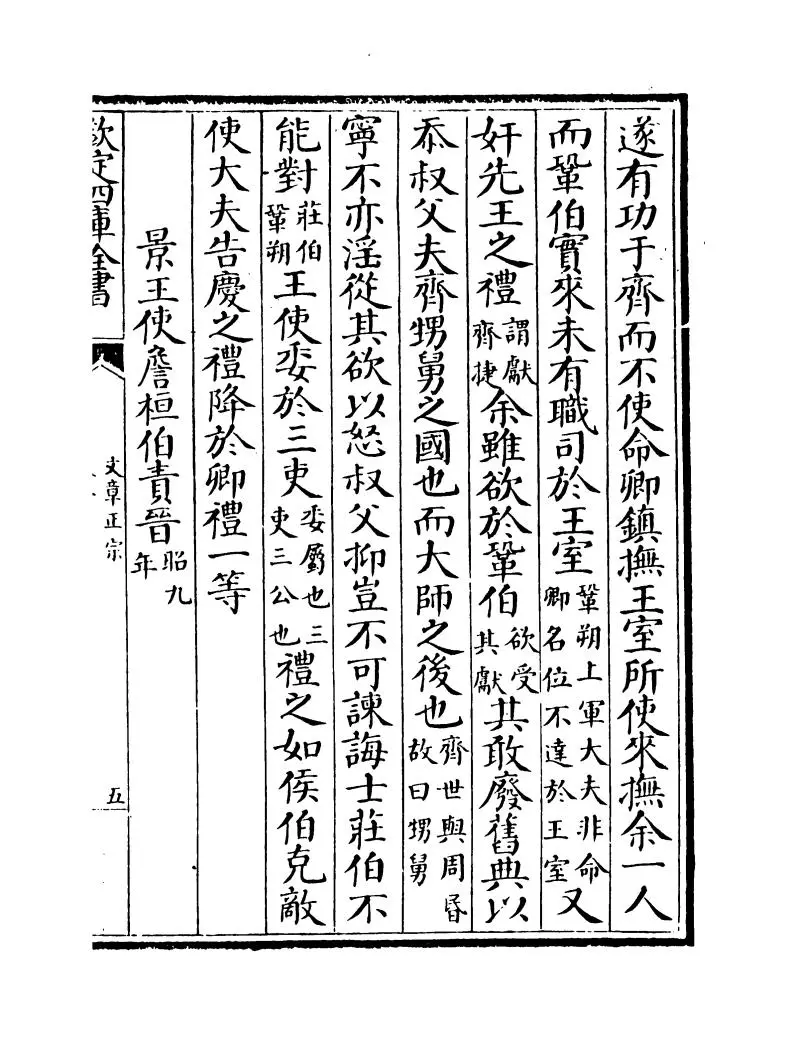 遂有功于齊而不使命卿鎮撫王室所使來撫余一人
而鞏伯實來未有職司於王室鞏朔上軍大夫非命卿名位不達於王室又
奸先王之禮謂獻齊捷余雖欲於鞏伯欲受其獻其敢廢舊典以
忝叔父夫齊甥舅之國也而大師之後也齊世與周昬故曰甥舅
寧不亦淫從其欲以怒叔父抑豈不可諫誨士莊伯不
能對莊伯鞏朔王使委於三吏委屬也三吏三公也禮之如侯伯克敵
使大夫告慶之禮降於卿禮一等
景王使詹桓伯責晉昭九年
欽定四庫全書
文章正宗
五